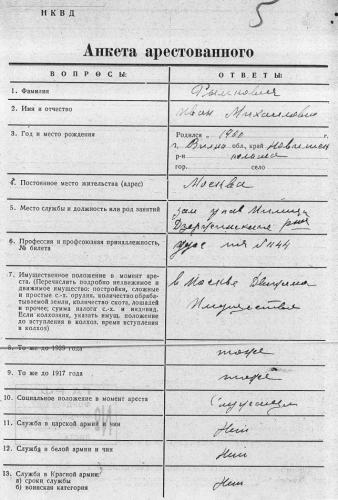 НКВД
5
Анкета арестованного
ВОПРОСЫ: ОТВЕТЫ:
1. Фамилия
2. Имя и отчество Иван Михайлович
3. Год и место рождения Родился „ 1900 г.
г. Вильно обл., край
р-н
гор. село
4. Постоянное место жительства (адрес) Москва
5. Место службы и должность или род занятий зам
Дзержинского
6. Профессия и профсоюзная принадлежность,
№ билета № 1144
7. Имущественное положение в момент аре-
ста. (Перечислить подробно недвижимое и
движимое имущество: постройки, сложные
и простые с.-х. орудия, количество обрабаты-
ваемой земли, количество скота, лошадей
и прочее; сумма налога с.-х. и индивид.
Если колхозник, указать имущ. положение
до вступления в колхоз, время вступления
в колхоз) в Москве
8. То же до 1929 года тоже
9. То же до 1917 года тоже
10. Социальное положение в момент ареста Служащий
11. Служба в царской армии и чин Нет
12. Служба в белой армии и чин Нет
13. Служба в Красной армии: Нет
а) сроки службы
б) воинская категория